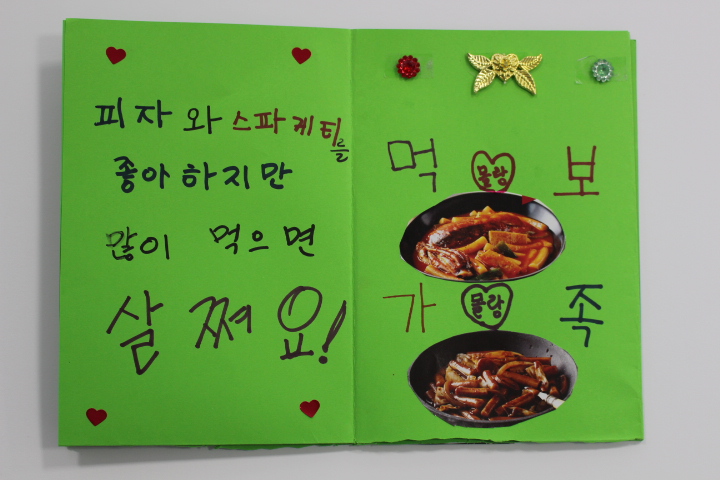 피자와 스파게티를
좋아하지만
많이 먹으면
살 쪄요!
먹 물랑 보
가 물랑 족